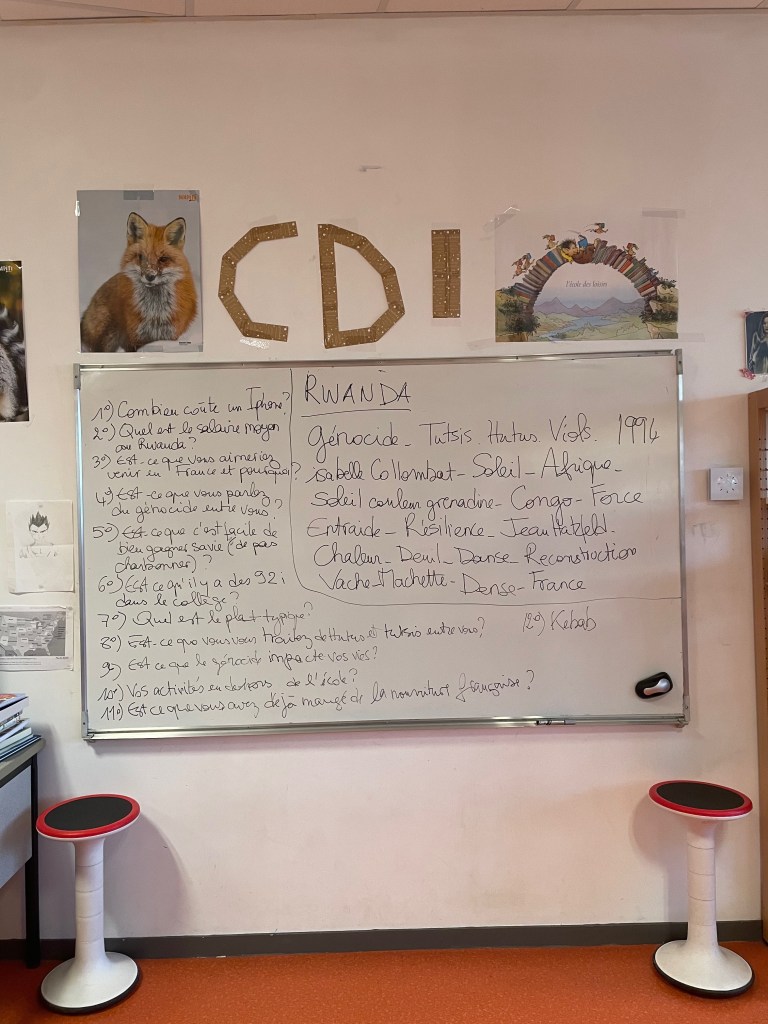 CDI
l'école des loisirs
1°) Combien coûte un Iphone?
2°) Quel est le salaire moyen
au Rwanda?
3°) Est-ce que vous aimeriez
venir en France et pourquoi?
4°) Est-ce que vous parlez
du génocide entre vous?
5°) Est-ce que c'est facile de
bien gagner sa vie (de pas
charbonner)?
6°) Est ce qu'il y a des 92i
dans le collège?
7°) Quel est le plat typique?
8°) Est-ce que vous vous traitez de Hutus et tutsis entre vous?
9°) Est ce que le génocide impacte vos vies?
10°) Vos activités en dehors de l'école?
11°) Est ce que vous avez déjà mangé de la nourriture française?
RWANDA
Génocide - Tutsis. Hutus. Viols. 1994
isabelle Collombat - Soleil - Afrique -
Soleil couleur grenadine - Congo - Force
Entraide - Résilience - Jean Hatzfeld.
Chaleur - Deuil - Danse - Reconstruction
Vache - Machette - Danse - France
12°) Kebab